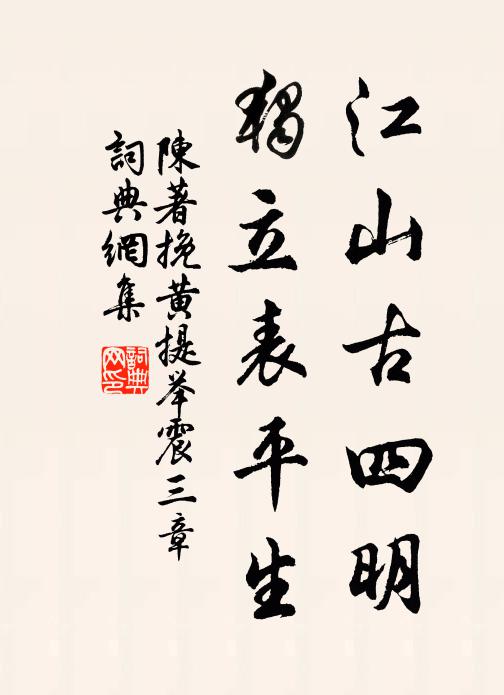 江山古四明
獨立表平生
陳著挽黃提举震三章
詞典網集
詞典网印